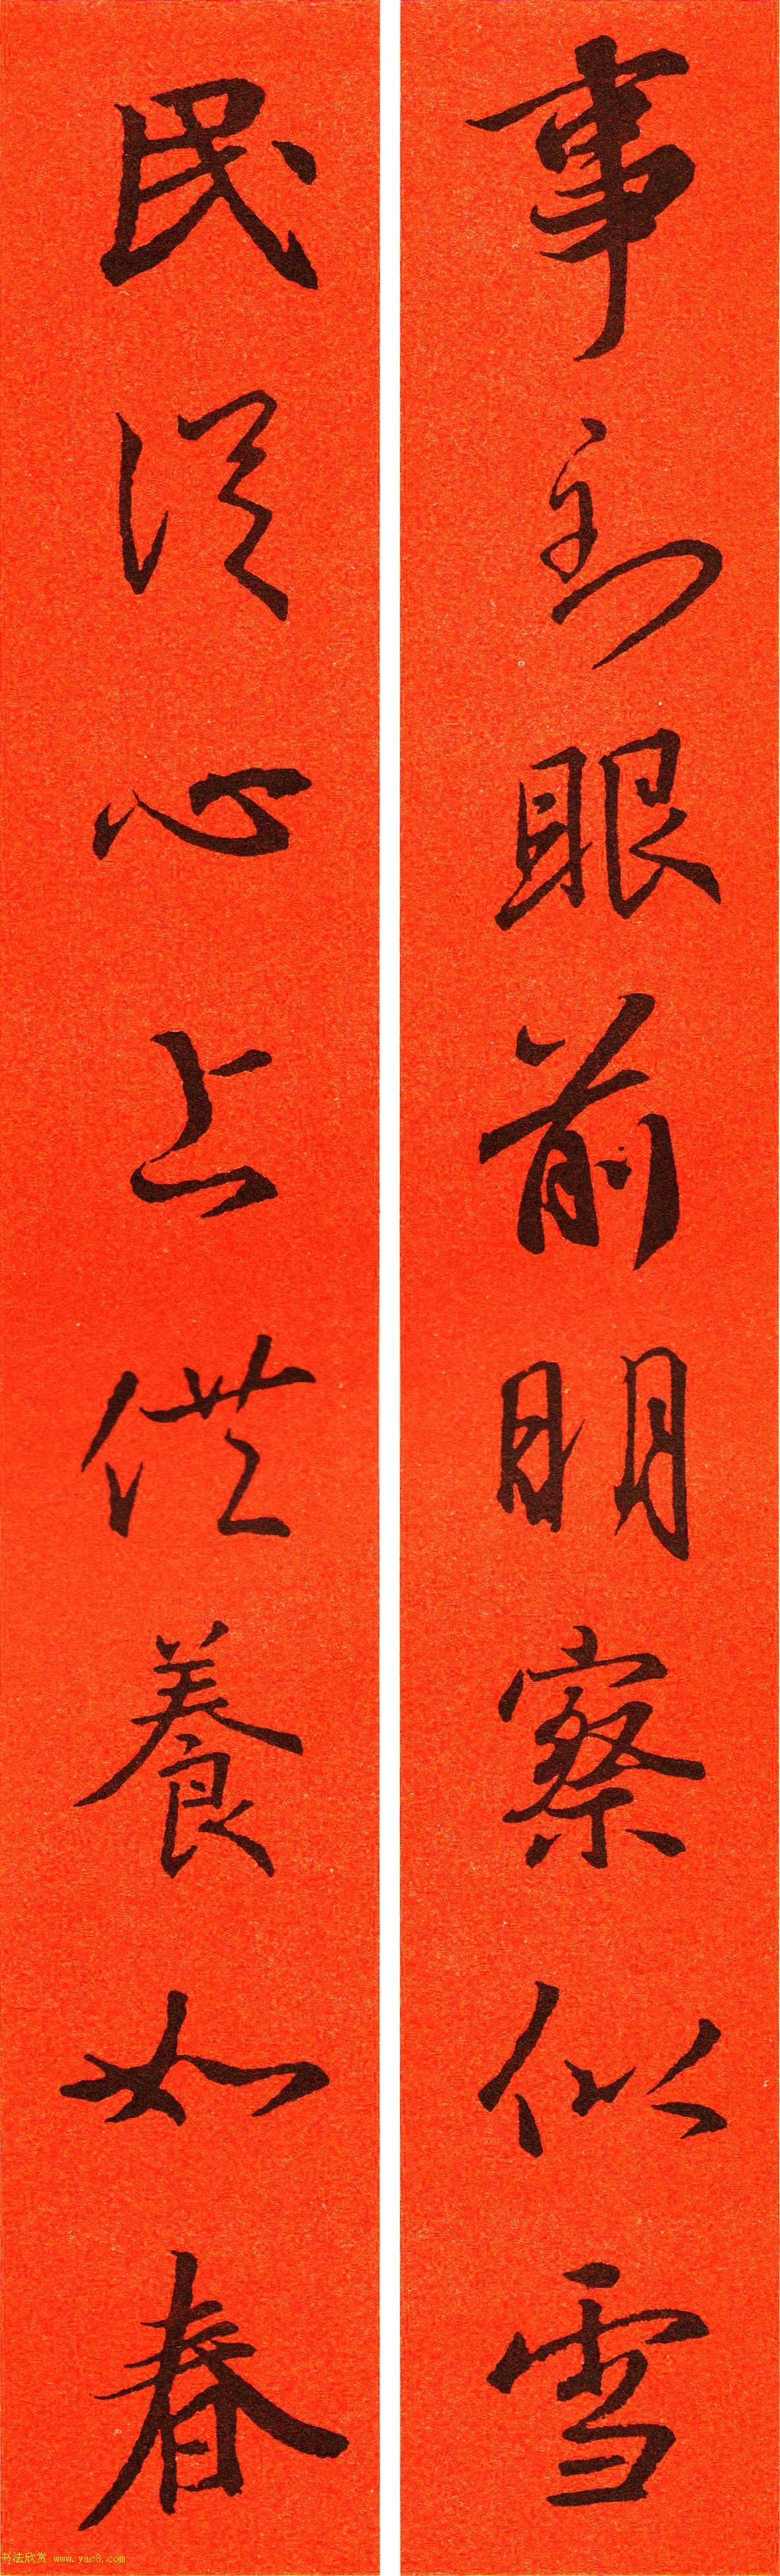 事到眼前明察似雪
民從心上供養如春
书法欣赏 www.yac8.com